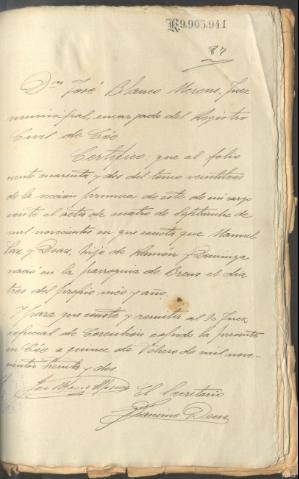 K9.905.941
87
Don José Blanco Moreno, Juez
municipal, encargado del Registro
Civil de Cée
Certifico: que al folio
cuarenta y dos del tomo veintitres
de la sección primera de este de mi cargo
consta el acta de cuatro de Septiembre de
mil novecientos en que consta que Manuel
y Deus, hijo de Ramón y Dominga
nació en la parroquia de Brens el dia
tres del propio mes y año.
Y para que conste y remitir al Sr. Juez
especial de Corcubión expido la presente
en Cée a quince de Febrero de mil nove-
cientos treinta y dos
El Secretario
Francisco Deus